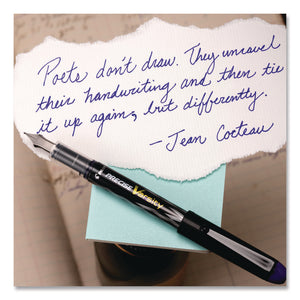 Poets don't draw. They unravel
their handwriting and then tie
it up again, but differently.
- Jean Cocteau
PRECISE Varsity